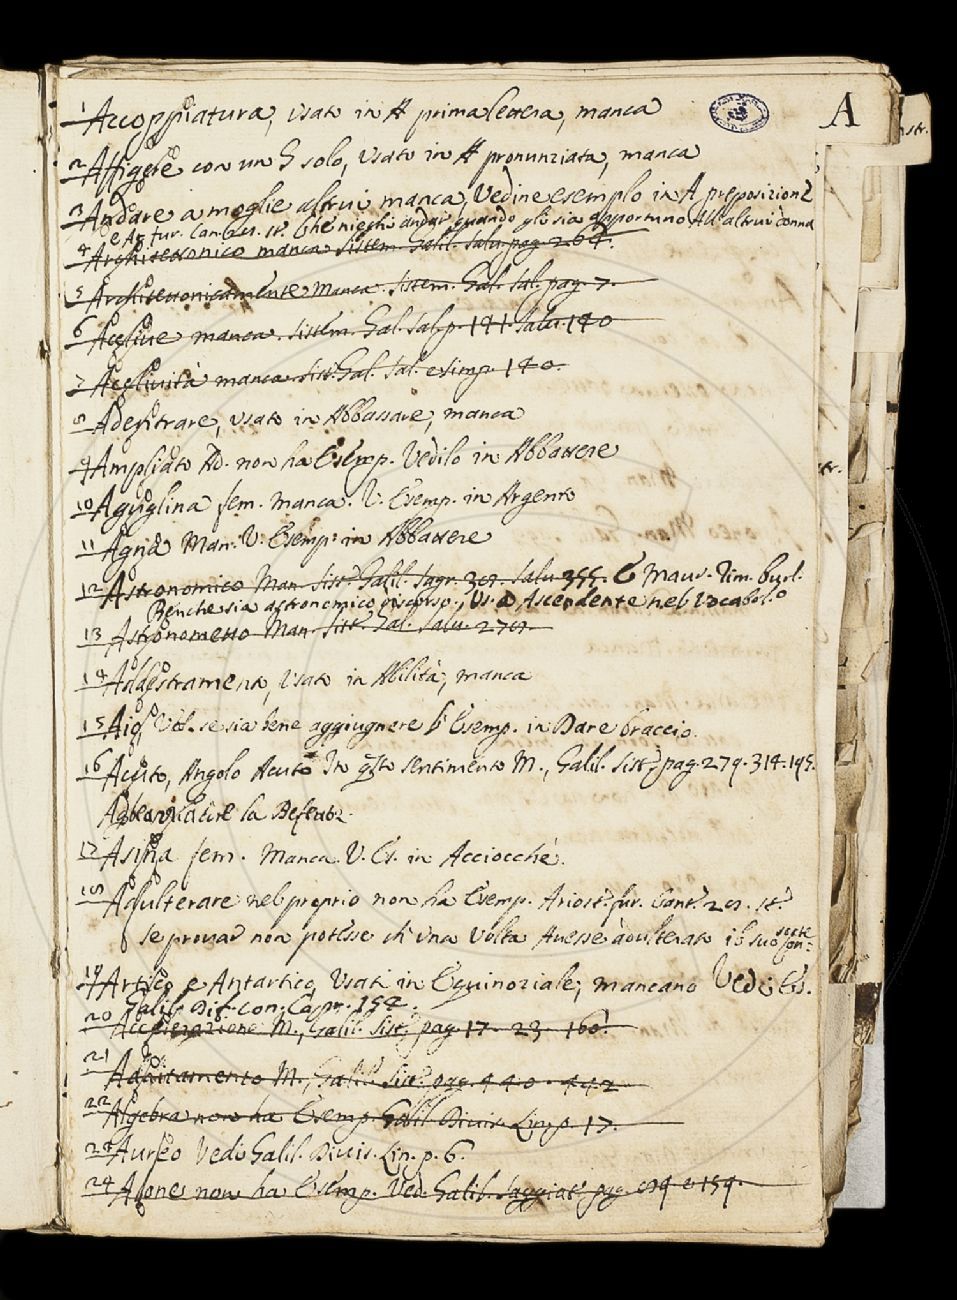 A
1 Accoppiatura, usato in A prima lettera, manca
2 Affigere con un G solo, usato in A pronunziata, manca
3 Andare a moglie altrui manca, Vedine esemplo in A preposizione
e Ar. fur. Can. st. Che nieghi andar, quando gli sia opportuno All'altrui donna
4 Architettonico manca Sistem. Galil. Salu. pag. 264.
5 Architettonicamente Manca. Sistem. Gal. Sal. pag. 7.
6 Acclive manca. Sistem. Gal. Sal. p. 141. Salu. 140
7 Acclività manca. Sist. Gal. Sal. e Simp. 140.
8 Adestrare, usato in Abbassare, manca
9 Ampliato Ad. non ha Esemp. Vedilo in Abbattere
10 Aguglina fem. Manca. V. Esemp. in Argento
11 Agna Man. V. Esemp. in Abbattere
12 Astronomico Man. Sist. Galil. Sagr. Salu. 355. E Maur. Rim. burl.
Benche sia astronomico discorso, Us. a Ascendente nel Vocabol.
13 Astronometto Man. Sist. Gal. Salu.
14 Addestramento, Usato in Abilità, manca
15 Ved. se sia bene aggiugnere l'Esemp. in Dare braccio.
16 Acuto, Angolo Acuto In questo sentimento M., Galil. Sist. pag. 279. 314. 195.
la
17 Asina fem. Manca. V. Es. in Acciocchè.
18 Adulterare nel proprio non ha Esemp. Ariost. fur. Cant. st.
se provar non potesse ch'una volta Avesse adulterato il suo
19 Artico e Antartico, Usati in Equinoziale, mancano Vedi Es.
Galil. Dif. con. Capr. 152.
20 Accelerazione M., Galil. Sist. pag. 17. 23. 166.
21 M., Galil. Sist. pag. 440. 442
22 Algebra non ha Esemp. Galil. Divis. Lin. p. 17.
Aureo Vedi Galil. Divis. Lin. p. 6.
24 Alone non ha Esemp. Ved. Galil. Saggiat. pag. e 159.